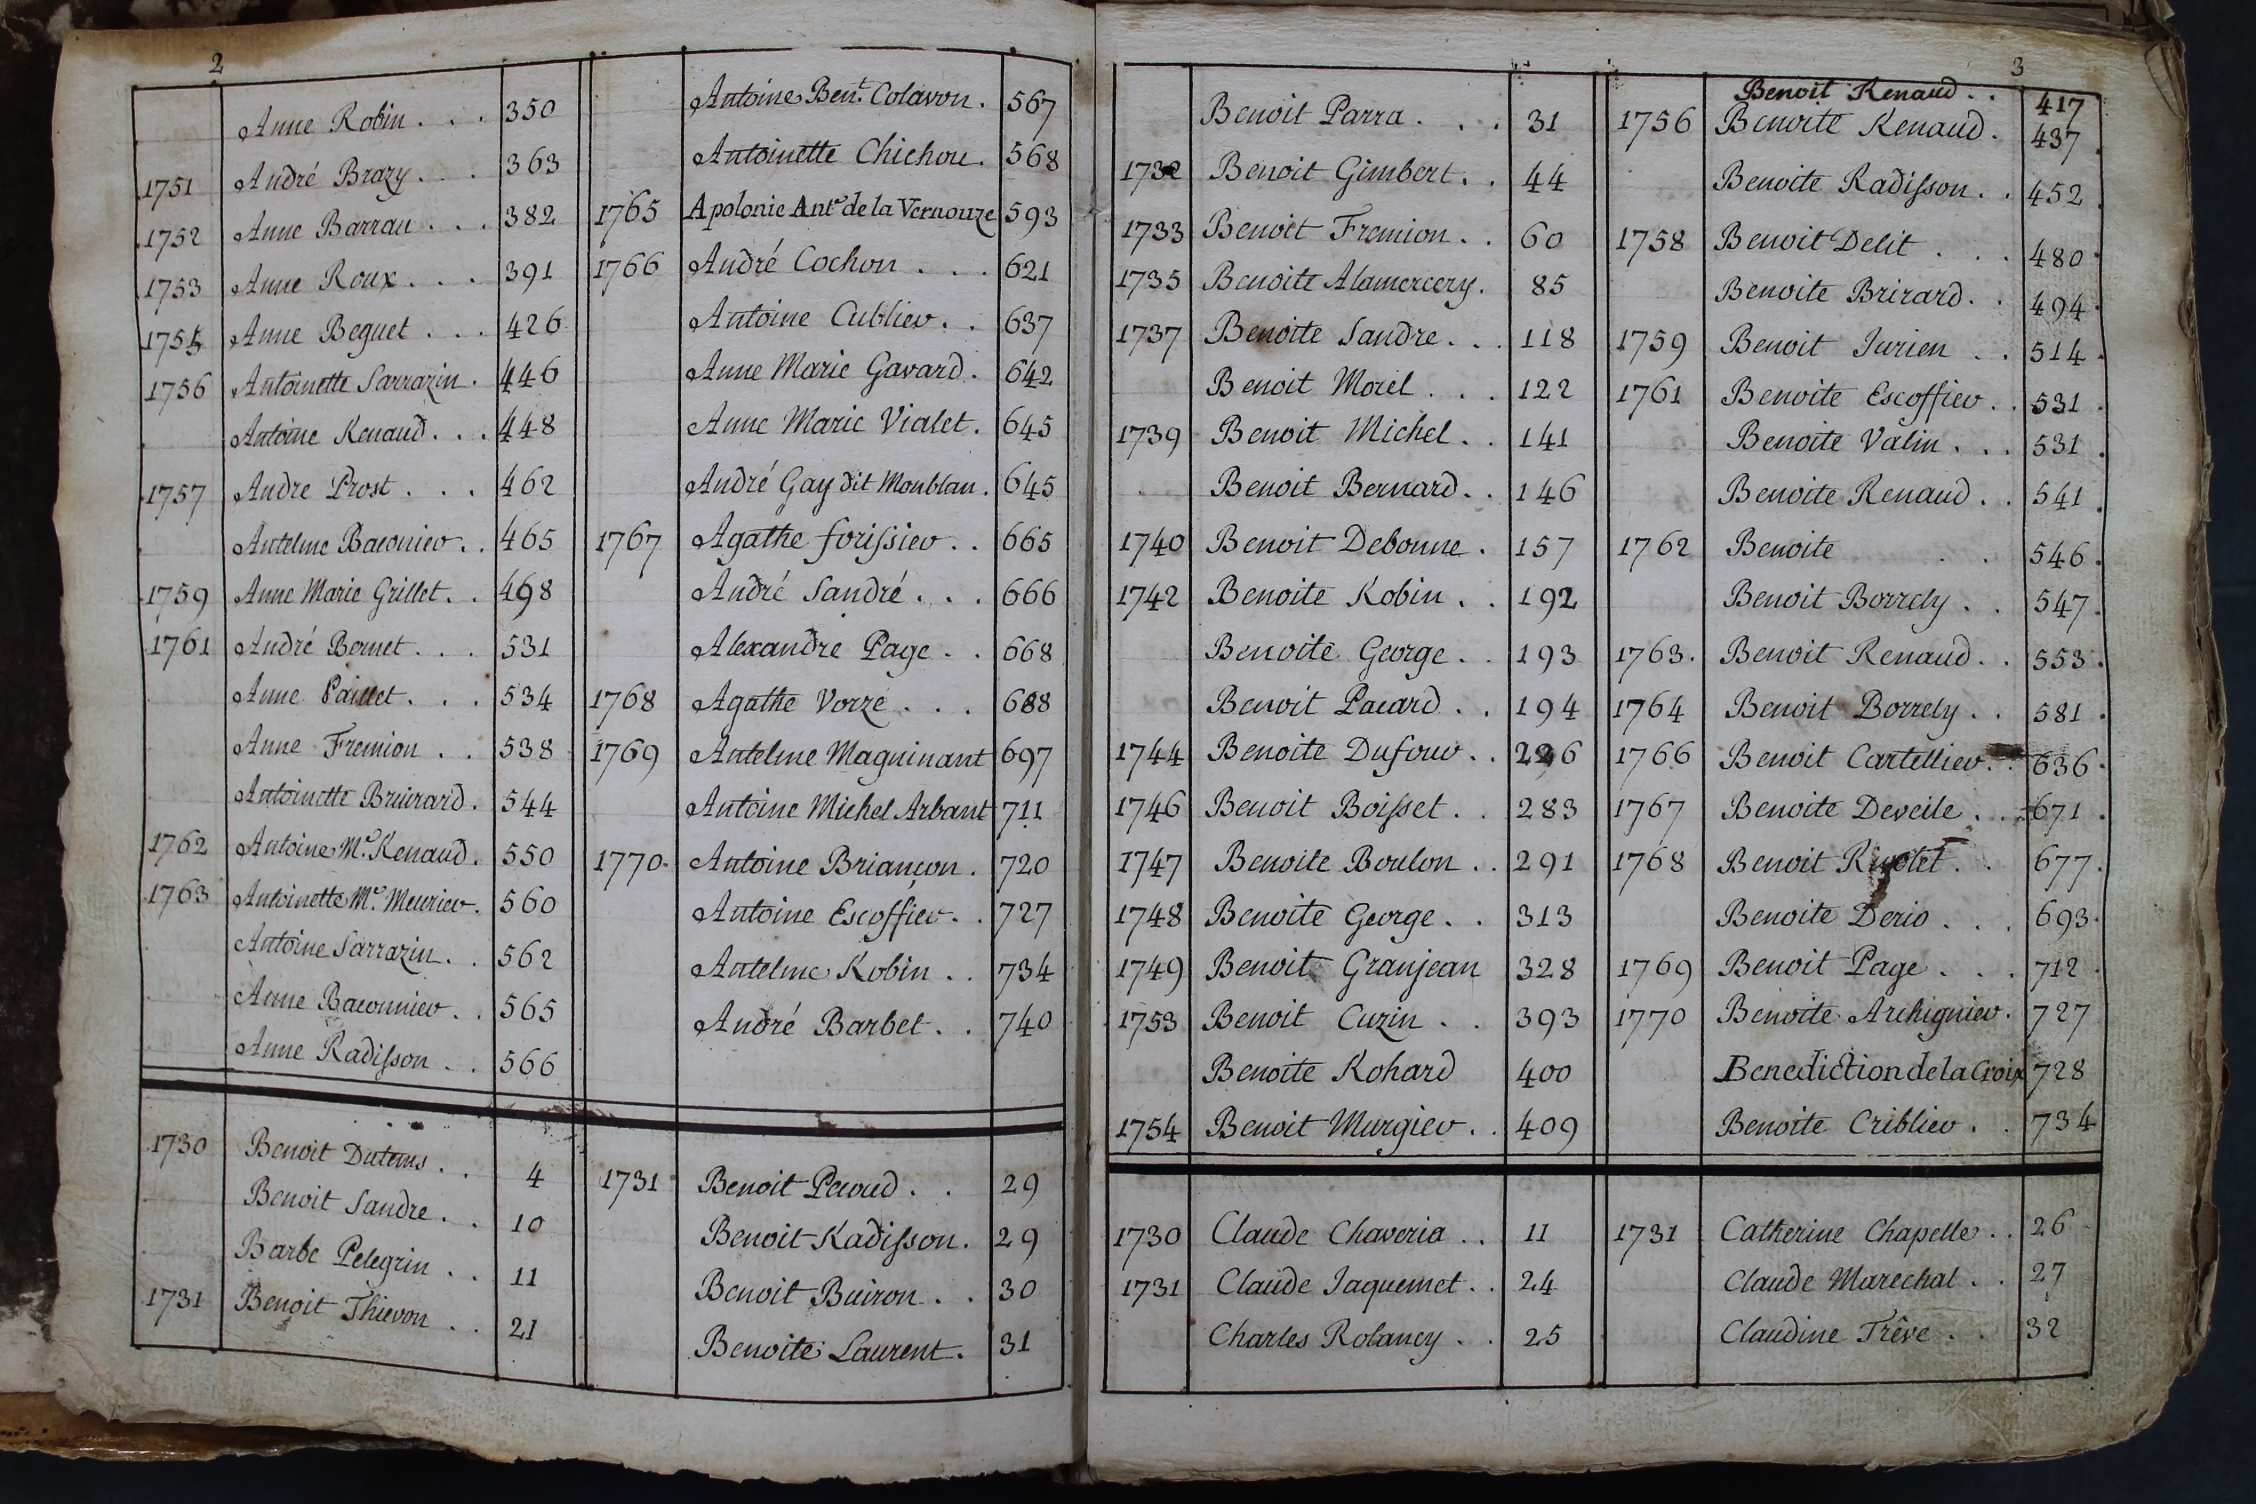 2
Anne Robin . . . 350
1751 André Brazy . . . 363
1752 Anne Barrau . . . 382
1753 Anne Roux . . . 391
1755 Anne Beguet . . . 426
1756 Antoinette Sarrazin . 446
Antoine Renaud . . . 448
1757 Andre Prost . . . 462
Antelme Baconier . . 465
1759 Anne Marie Grillet . . 498
1761 André Bernet . . . 531
Anne Paillet . . . 534
Anne Fremion . . 538
Antoinette Briurard . 544
1762 Antoine Me. Renaud . 550
1763 Antoinette Me. Meurier . 560
Antoine Sarrazin . . 562
Anne Baconnier . . 565
Anne Radisson . . 566
Antoine Bent. Colavon . 567
Antoinette Chichou . 568
1765 Apolonie Ante. de la Vernouze 593
1766 André Cochon . . . 621
Antoine Cublier . . 637
Anne Marie Gavard . 642
Anne Marie Vialet . 645
André Gay dit Monblan . 645
1767 Agathe forissier . . 665
André Sandré . . . 666
Alexandre Page . . 668
1768 Agathe Vorze . . . 688
1769 Antelme Magninant 697
Antoine Michel Arbant 711
1770 . Antoine Briançon . 720
Antoine Escoffier . . 727
Antelme Robin . . 734
André Barbet . . 740
1730 Benoit Dutems . . 4
Benoit Sandre . . 10
Barbe Pelegrin . . 11
1731 Benoit Thievon . . 21
1731 Benoit Peroud . . 29
Benoit Radisson . 29
Benoit Buiron . . 30
Benoite Laurent . 31
3
Benoit Parra . . . 31
1732 Benoit Gimbert . . 44
1733 Benoit Fremion . . 60
1735 Benoite Alamercery . 85
1737 Benoite Sandre . . . 118
Benoit Morel . . . 122
1739 Benoit Michel . . 141
Benoit Bernard . . 146
1740 Benoit Debonne . 157
1742 Benoite Robin . . 192
Benoite George . . 193
Benoit Pacard . . 194
1744 Benoite Dufour . . 226
1746 Benoit Boisset . . 283
1747 Benoite Boulon . . 291
1748 Benoite George . . 313
1749 Benoit Granjean 328
1753 Benoit Cuzin . . 393
Benoite Rohard 400
1754 Benoit Murgier . . 409
Benoit Renaud . . 417
1756 Benoite Renaud . 437
Benoite Radisson . . 452
1758 Benoit Delit . . . 480
Benoite Brirard . . 494
1759 Benoit Jurien . . 514
1761 Benoite Escoffier . . 531
Benoite Valin . . . 531
Benoite Renaud . . 541
1762 Benoite . . 546
Benoit Borrely . . 547
1763 . Benoit Renaud . . 553
1764 Benoit Borrely . . 581
1766 Benoit Cartellier . . 636
1767 Benoite Deveile . . . 671
1768 Benoit Rivolet . . 677
Benoite Derio . . . 693
1769 Benoit Page . . . 712
1770 Benoite Archignier . 727
Benediction de la Croix 728
Benoite Criblier . . 734
1730 Claude Chaveria . . 11
1731 Claude Jaquemet . . 24
Charles Rolancy . . 25
1731 Catherine Chapelle . . 26
Claude Marechal . . 27
Claudine Trêve . . 32